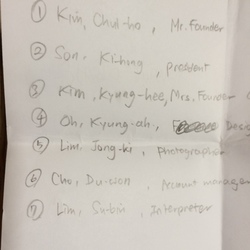 ① Kim, Chul-ho, Mr. Founder
② Son, Ki-hung, president
③ Kim, Kyung-hee, Mrs. Founder
④ Oh, Kyung-ah, Desig
⑤ Lim, Jong-ki, photographer
⑥ Cho, Du-cion, Account manager
⑦ Lim, Su-bin, Interpreter